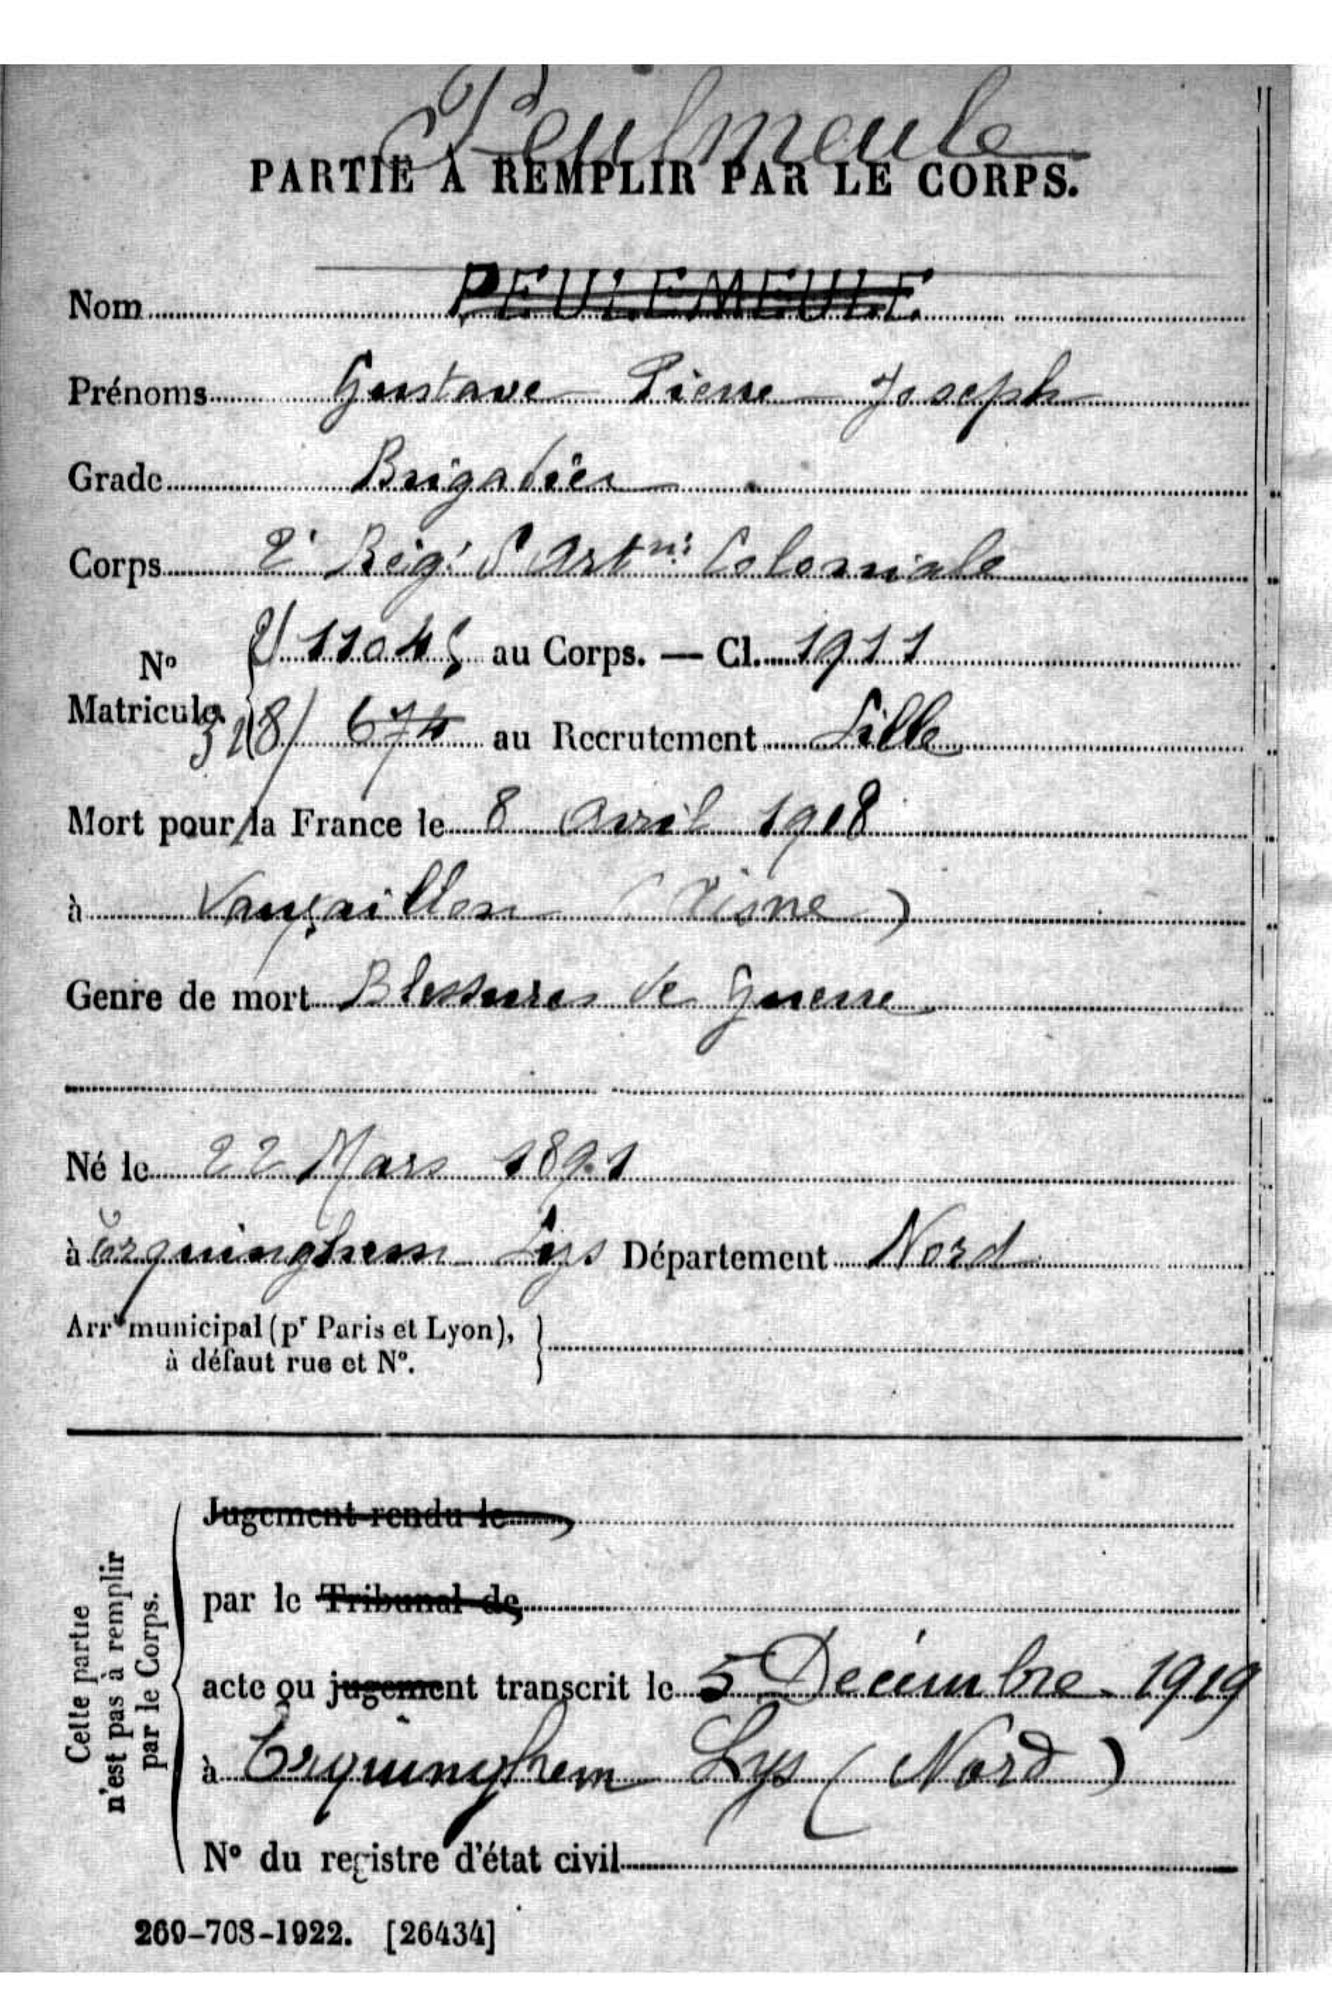 Peulmeule
PARTIE À REMPLIR PAR LE CORPS.
Nom PEULEMEULE
Prénoms Gustave Pierre Joseph
Grade Brigadier
Corps 2e Rég.t d'Art.rie Coloniale
No Matricule.
11045 au Corps. — Cl. 1911
674 au Recrutement Lille
Mort pour la France le 8 Avril 1918
à Vauxaillon (Aisne)
Genre de mort Blessures de Guerre
Né le 22 Mars 1891
à Erquinghem Lys Département Nord
Arrt municipal (pr Paris et Lyon),
à défaut rue et No.
Cette partie
n'est pas à remplir
par le Corps.
Jugement rendu le
par le Tribunal de
acte ou jugement transcrit le 5 Décembre 1919
à Erquinghem Lys (Nord)
No du registre d'état civil
269-708-1922. [26434]